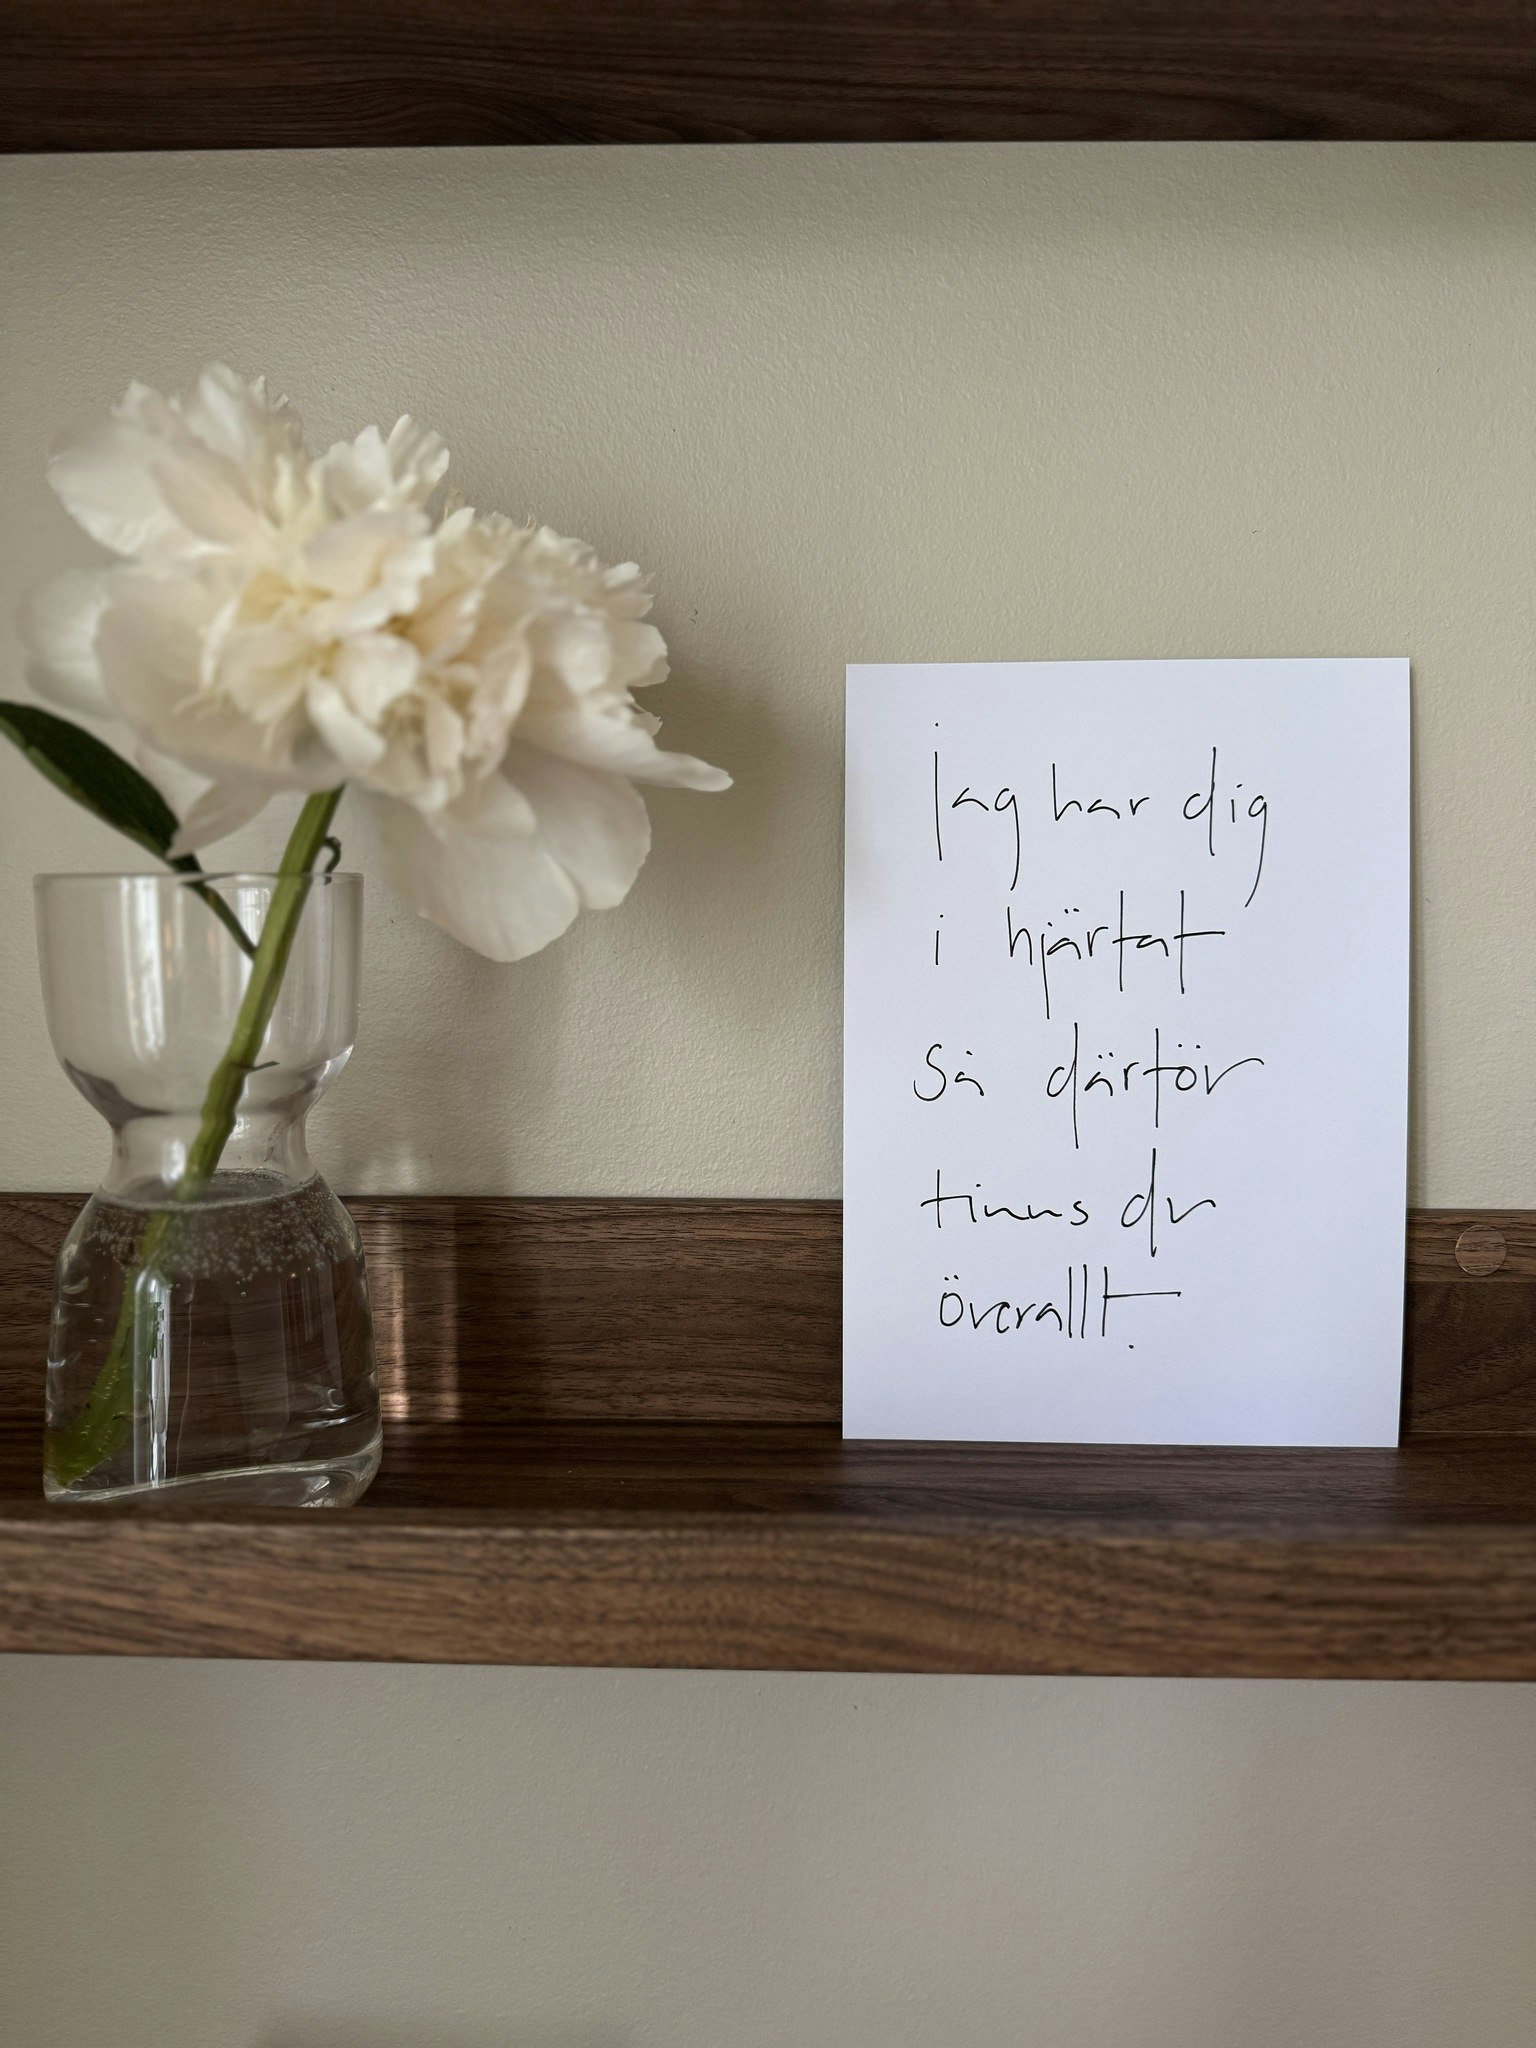 jag har dig
i hjärtat
så därför
finns du
överallt.